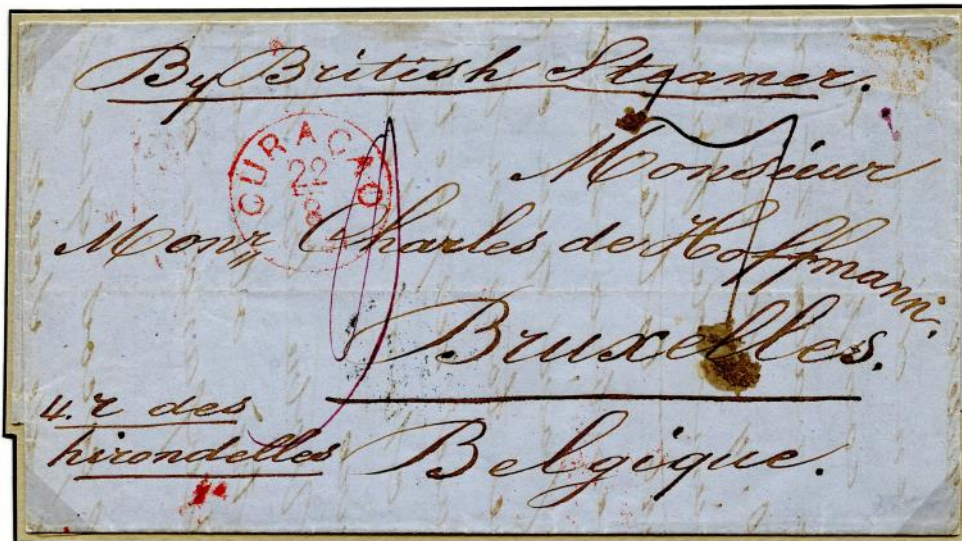 By British Steamer.
CURAÇAO
22
8
Monsieur
Monr Charles de Hoffmann.
Bruxelles.
4. r des
hirondelles
Belgique.